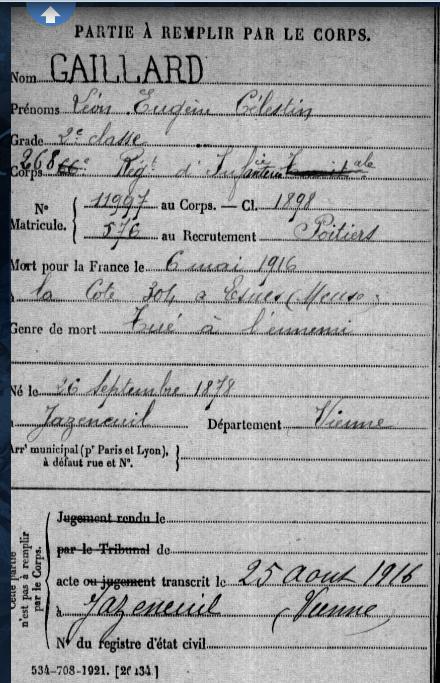 PARTIE À REMPLIR PAR LE CORPS.
Nom GAILLARD
Prénoms Léon Eugène Célestin
Grade 2e classe
Corps 268 66e Régt d'Infanterie
N° Matricule. { 11997 au Corps. — Cl. 1898
576 au Recrutement Poitiers
Mort pour la France le 6 mai 1916
à la Cote 304 à Esnes (Meuse)
Genre de mort Tué à l'ennemi
Né le 26 septembre 1878
à Jazeneuil Département Vienne
Arrt municipal (pr Paris et Lyon), à défaut rue et N°. }
Cette partie n'est pas à remplir par le Corps.
Jugement rendu le
par le Tribunal de
acte ou jugement transcrit le 25 Aout 1916
à Jazeneuil (Vienne)
N° du registre d'état civil
534-708-1921. [26134.]